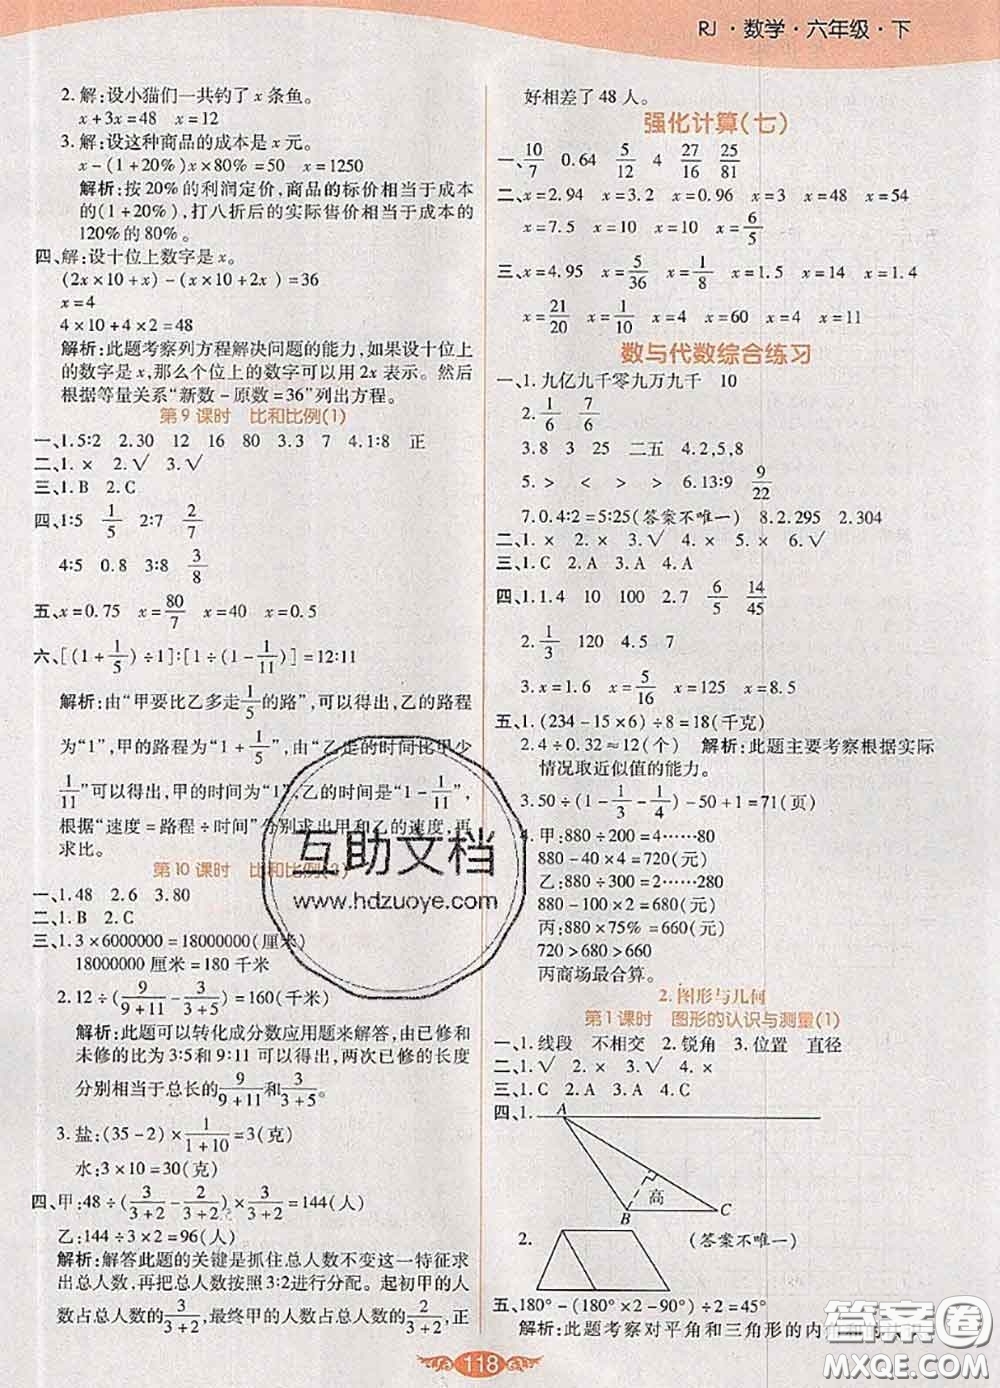 RJ·数学·六年级·下
2.解:设小猫们一共钓了x条鱼。
x+3x=48 x=12
3.解:设这种商品的成本是x元。
x-(1+20%)x×80%=50 x=1250
解析:按20%的利润定价,商品的标价相当于成本
的(1+20%),打八折后的实际售价相当于成本的
120%的80%。
四、解:设十位上数字是x。
(2x×10+x)-(x×10+2x)=36
x=4
4×10+4×2=48
解析:此题考察列方程解决问题的能力,如果设十位上
的数字是x,那么个位上的数字可以用2x表示。然后
根据等量关系“新数-原数=36”列出方程。
第9课时 比和比例(1)
一、1.5∶2 2.30 12 16 80 3.3 7 4.1∶8 正
二、1.× 2.√ 3.√
三、1.B 2.C
四、1∶5 1/5 2∶7 2/7
4∶5 0.8 3∶8 3/8
五、x=0.75 x=80/7 x=40 x=0.5
六、[(1+1/5)÷1]∶[1÷(1-1/11)]=12∶11
解析:由“甲要比乙多走1/5的路”,可以得出,乙的路程
为“1”,甲的路程为“1+1/5”,由“乙走的时间比甲少
1/11”可以得出,甲的时间为“1”,乙的时间是“1-1/11”,
根据“速度=路程÷时间”分别求出甲和乙的速度,再
求比。
第10课时 比和比例(2)
一、1.48 2.6 3.80
二、1.B 2.C
三、1.3×6000000=18000000(厘米)
18000000厘米=180千米
2.12÷(9/(9+11)-3/(3+5))=160(千米)
解析:此题可以转化成分数应用题来解答,由已修和
未修的比为3∶5和9∶11可以得出,两次已修的长度
分别相当于总长的9/(9+11)和3/(3+5)。
3.盐:(35-2)×1/(1+10)=3(克)
水:3×10=30(克)
四、甲:48÷(3/(3+2)-2/(3+2))×3/(3+2)=144(人)
乙:144÷3×2=96(人)
解析:解答此题的关键是抓住总人数不变这一特征求
出总人数,再把总人数按照3∶2进行分配。起初甲的人
数占总人数的3/(3+2),最终甲的人数占总人数的2/(3+2),正
好相差了48人。
强化计算(七)
一、10/7 0.64 5/12 4 27/16 25/81
二、x=2.94 x=3.2 x=0.96 x=48 x=54
x=7.5 x=10 x=10 x=6/5
三、x=4.95 x=5/36 x=1/8 x=1.5 x=14 x=2
x=21/20 x=1/10 x=4 x=60 x=4 x=11
数与代数综合练习
一、1.九亿九千零九万九千 10
2.1/6 7/6
3.8 3 25 二五 4.2,5,8
5.> < > > 6.13∶9 9/22
7.0.4∶2=5∶25(答案不唯一) 8.2.295 2.304
二、1.× 2.× 3.√ 4.× 5.× 6.√
三、1.C 2.A 3.A 4.A
四、1.1.4 10 100 2.7 6/5 14/45
2.1/3 120 4.5 7
3.x=1.6 x=5/16 x=125 x=8.5
五、1.(234-15×6)÷8=18(千克)
2.4÷0.32≈12(个) 解析:此题主要考察根据实际
情况取近似值的能力。
3.50÷(1-1/3-1/4)-50+1=71(页)
4.甲:880÷200=4……80
880-40×4=720(元)
乙:880÷100=8……80
880-100×2=680(元)
丙:880×75%=660(元)
720>680>660
丙商场最合算。
2.图形与几何
第1课时 图形的认识与测量(1)
一、1.线段 不相交 2.锐角 3.位置 直径
二、1.√ 2.× 3.√ 4.×
三、1.C 2.A 3.A 4.C
四、1.
A
高
B
C
2. (答案不唯一)
五、180°-(180°×2-90°)÷2=45°
解析:此题考察对平角和三角形的内
118
互助文档
www.hdzuoye.com
答案圈
MXQE.COM